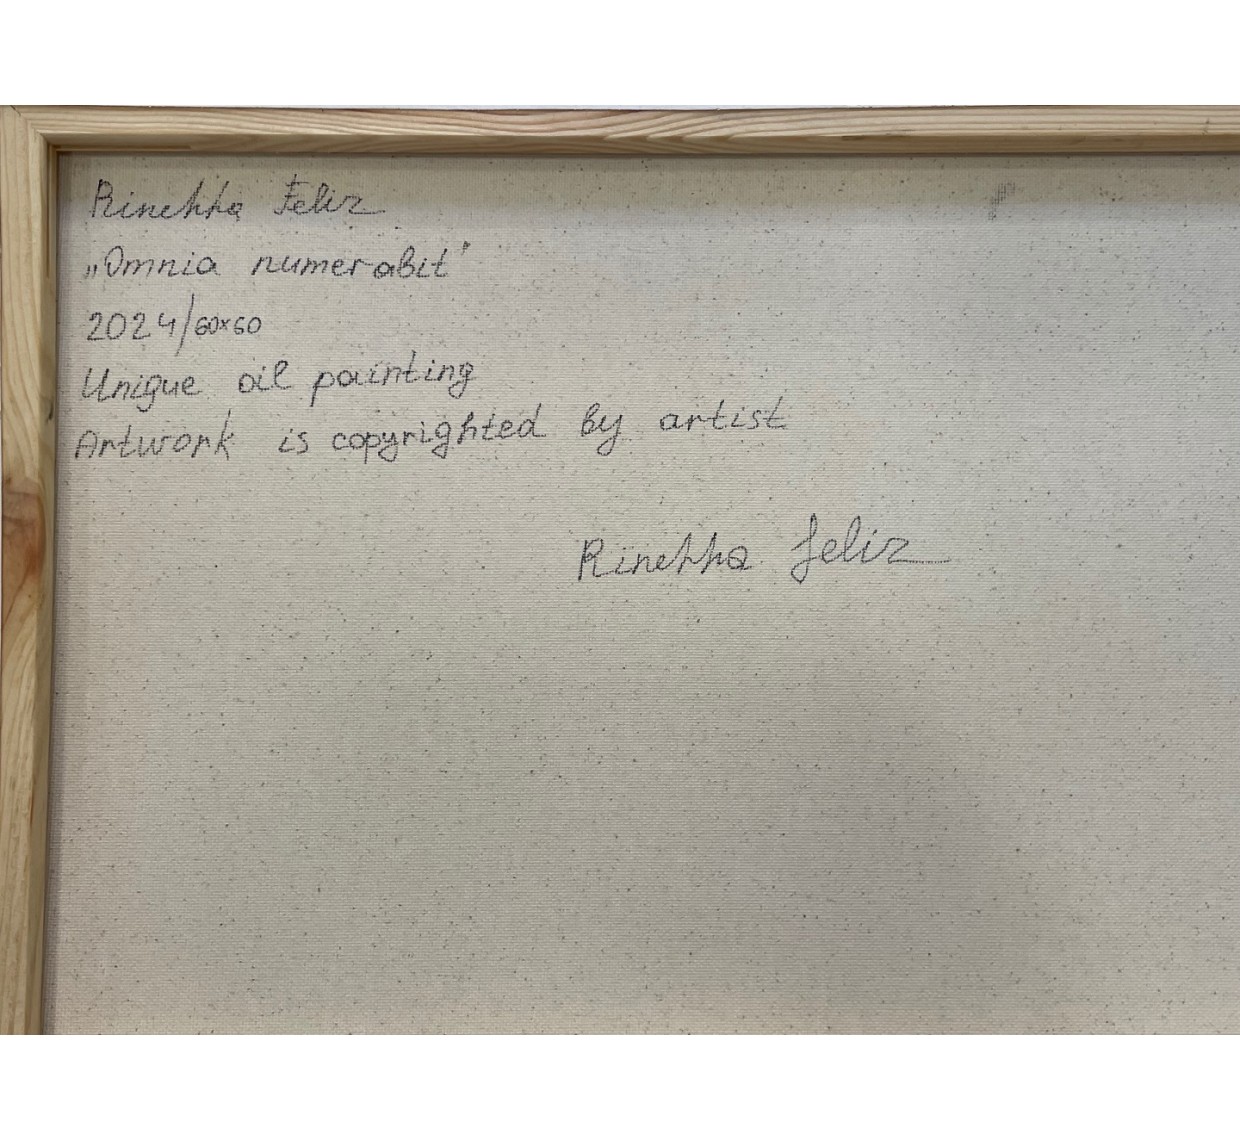 Rinehha Feliz
„Omnia numerabit"
2024/60x60
Unique oil painting
Artwork is copyrighted by artist
Rinehha Feliz